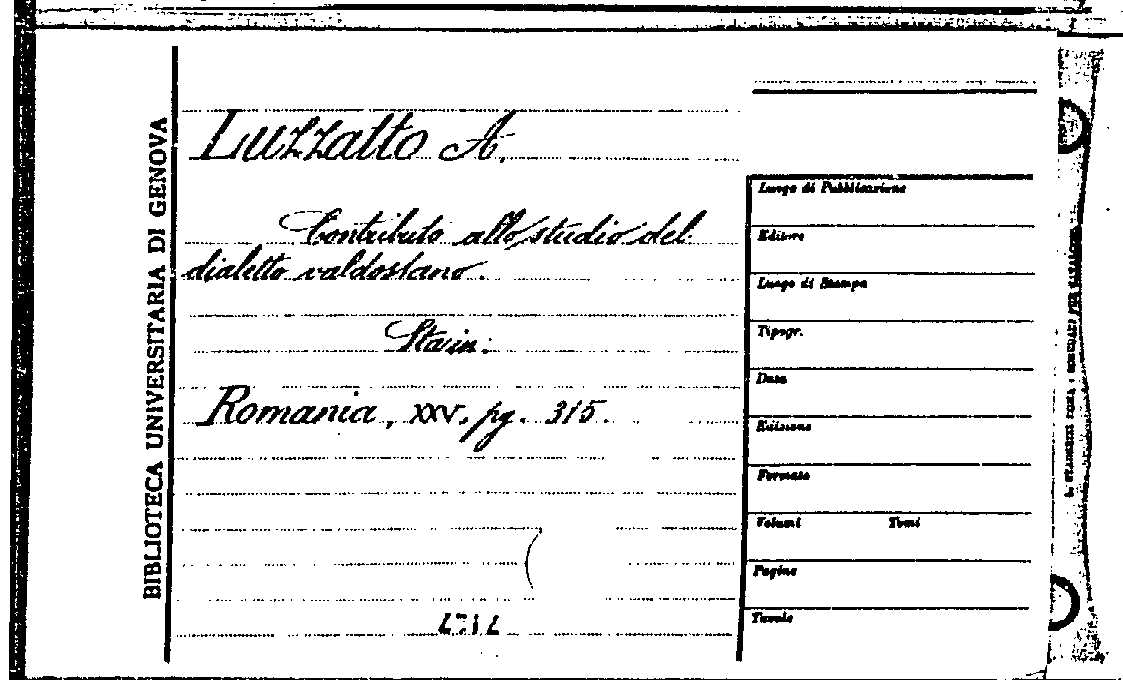 BIBLIOTECA UNIVERSITARIA DI GENOVA
Luzzatto A.
Contributo allo studio del
dialetto valdostano.
Sta in:
Romania, XXV, pg. 315.
Luogo di Pubblicazione
Editore
Luogo di Stampa
Tipogr.
Data
Edizione
Formato
Volumi Tomi
Pagine
Tavole